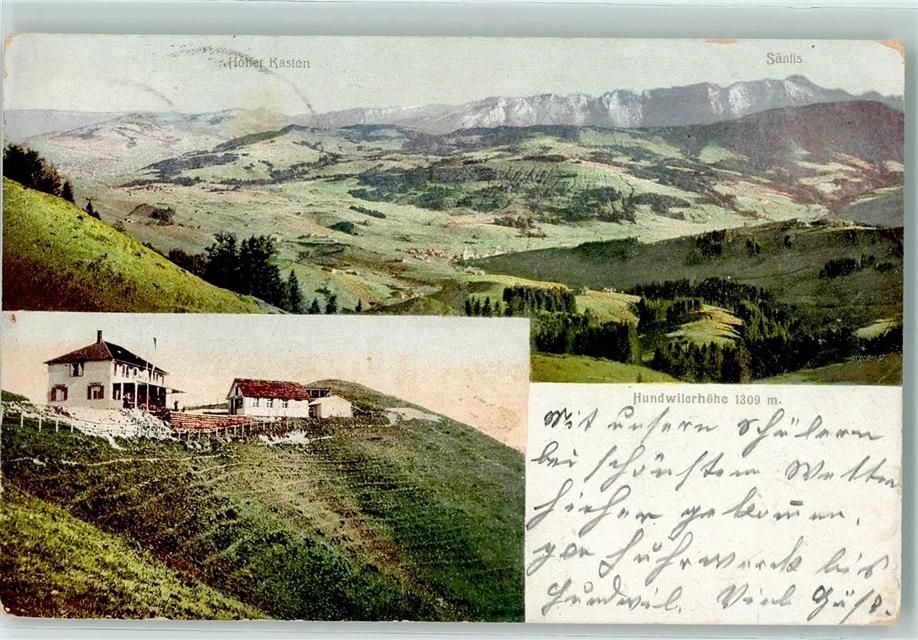 Hoher Kasten
Säntis
Hundwilerhöhe 1309 m.
Mit unsern Schülern
bei schönstem Wetter
hieher gekommen,
per Fuhrwerk bis
Hundwil. Viel Grüße.